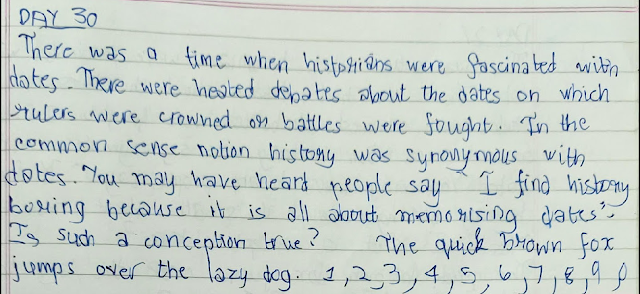 DAY 30
There was a time when historians were fascinated with
dates. There were heated debates about the dates on which
rulers were crowned or battles were fought. In the
common sense notion history was synonymous with
dates. You may have heard people say "I find history
boring because it is all about memorising dates".
Is such a conception true? The quick brown fox
jumps over the lazy dog. 1, 2, 3, 4, 5, 6, 7, 8, 9, 0